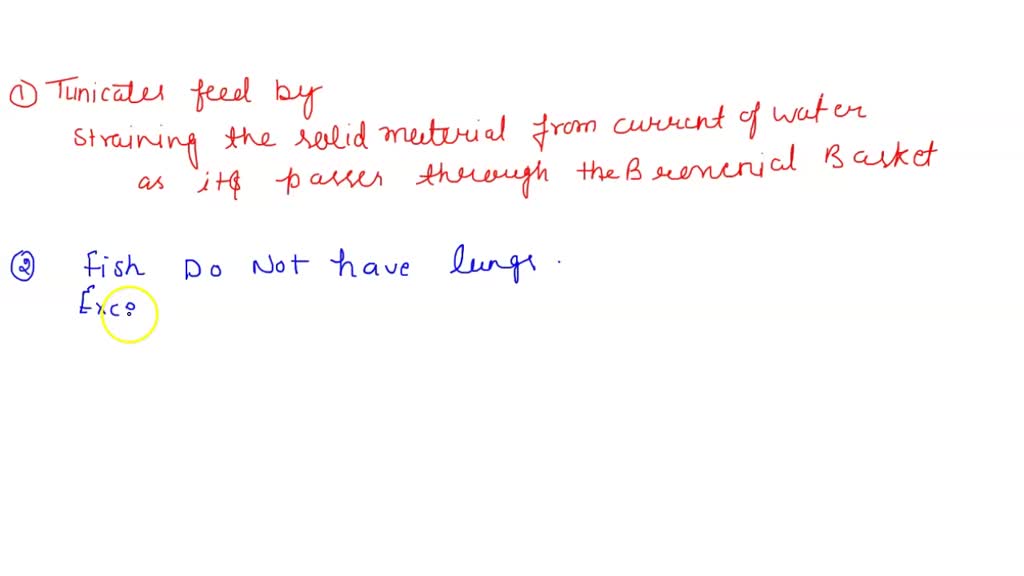 ① Tunicates feed by
straining the solid material from current of water
as its passes through the Broncnial Basket
② fish Do Not have lungs.
Exce